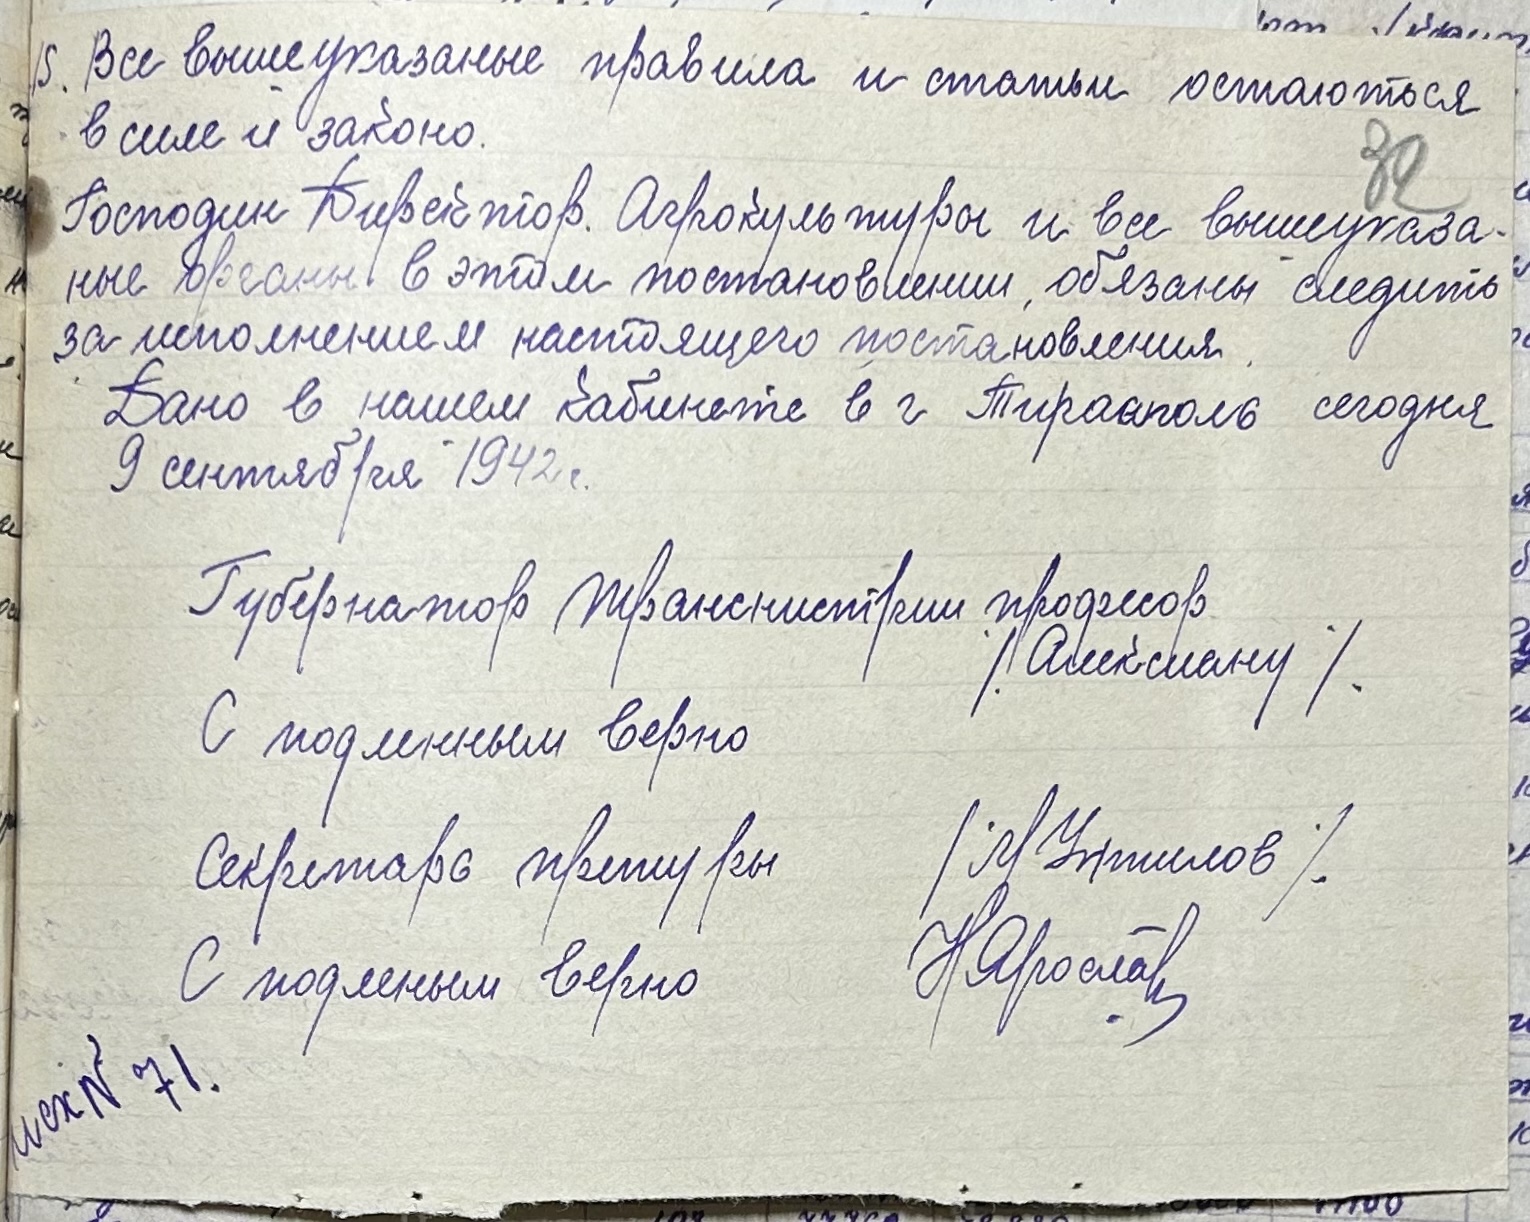 15. Все вышеуказаные правила и статьи остаються
в силе и законо.
32
Господин Директор. Агрокультуры и все вышеуказа-
ные органы в этом постановлении, обязаны следить
за исполнением настоящего постановления.
Дано в нашем кабинете в г Тирасполь сегодня
9 сентября 1942 г.
Губернатор Транснистрии професор
/ Алексиану /.
С подленным верно
Секретарь претуры
С подленым верно
НЯрослав
исх№ 71.